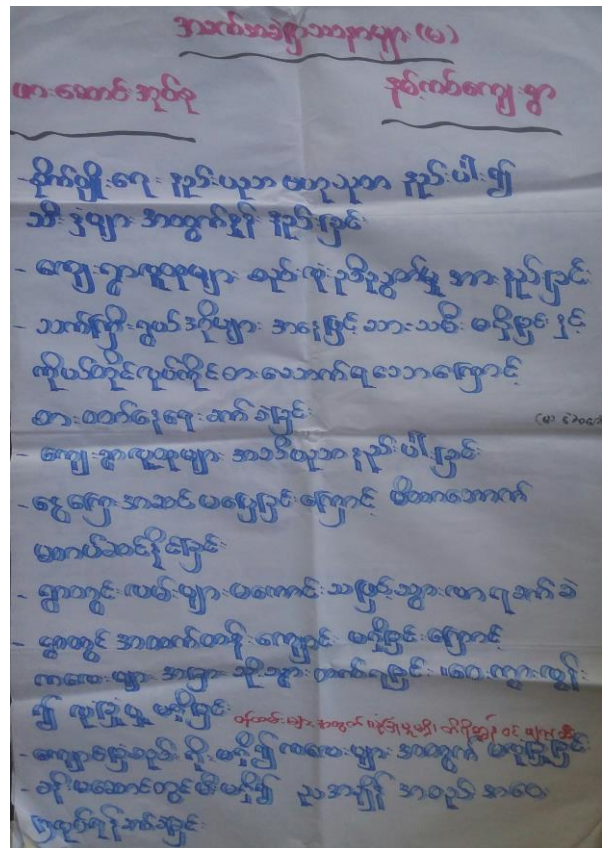 အခက်အခဲပြဿနာများ (မ)
ဖားဆောင်းအုပ်စု နမ့်ကပ်ကျေးရွာ
- စိုက်ပျိုးရေး နည်းပညာ ဗဟုသုတ နည်းပါး၍
သီးနှံများ အထွက်နှုန်း နည်းခြင်း
- ကျေးရွာလူထုများ စည်းလုံးညီညွတ်မှု အားနည်းခြင်း
- သက်ကြီးရွယ်အိုများ အနေဖြင့် သားသမီး မရှိခြင်း နှင့်
ကိုယ်တိုင်လုပ်ကိုင်စားသောက်ရသောကြောင့်
စားဝတ်နေရေးခက်ခဲခြင်း
- ကျေးရွာလူထုများ အသိပညာ နည်းပါးခြင်း
- ငွေကြေးအဆင်မပြေခြင်းကြောင့် အိမ်သာဆောက်
မတတ်နိုင်ခြင်း
- ရွာတွင်းလမ်းများမကောင်းသဖြင့်သွားလာရခက်ခဲ
- ရွာတွင် အထက်တန်းကျောင်း မရှိခြင်းကြောင့်
ကလေးများ အခြားသို့သွားတက်ရခြင်း ။ဝေးကွာလွန်း
၍ လုံခြုံမှု မရှိခြင်း
ဝန်ထမ်းများအတွက် လုံခြုံမှုမရှိ
- ကျောင်းခြံစည်းရိုးမရှိ၍ ကလေးများ အတွက် မလုံခြုံခြင်း
- မီးမရှိ၍ ညအချိန် အစည်းအဝေး
ပြုလုပ်ရန်ခက်ခဲခြင်း